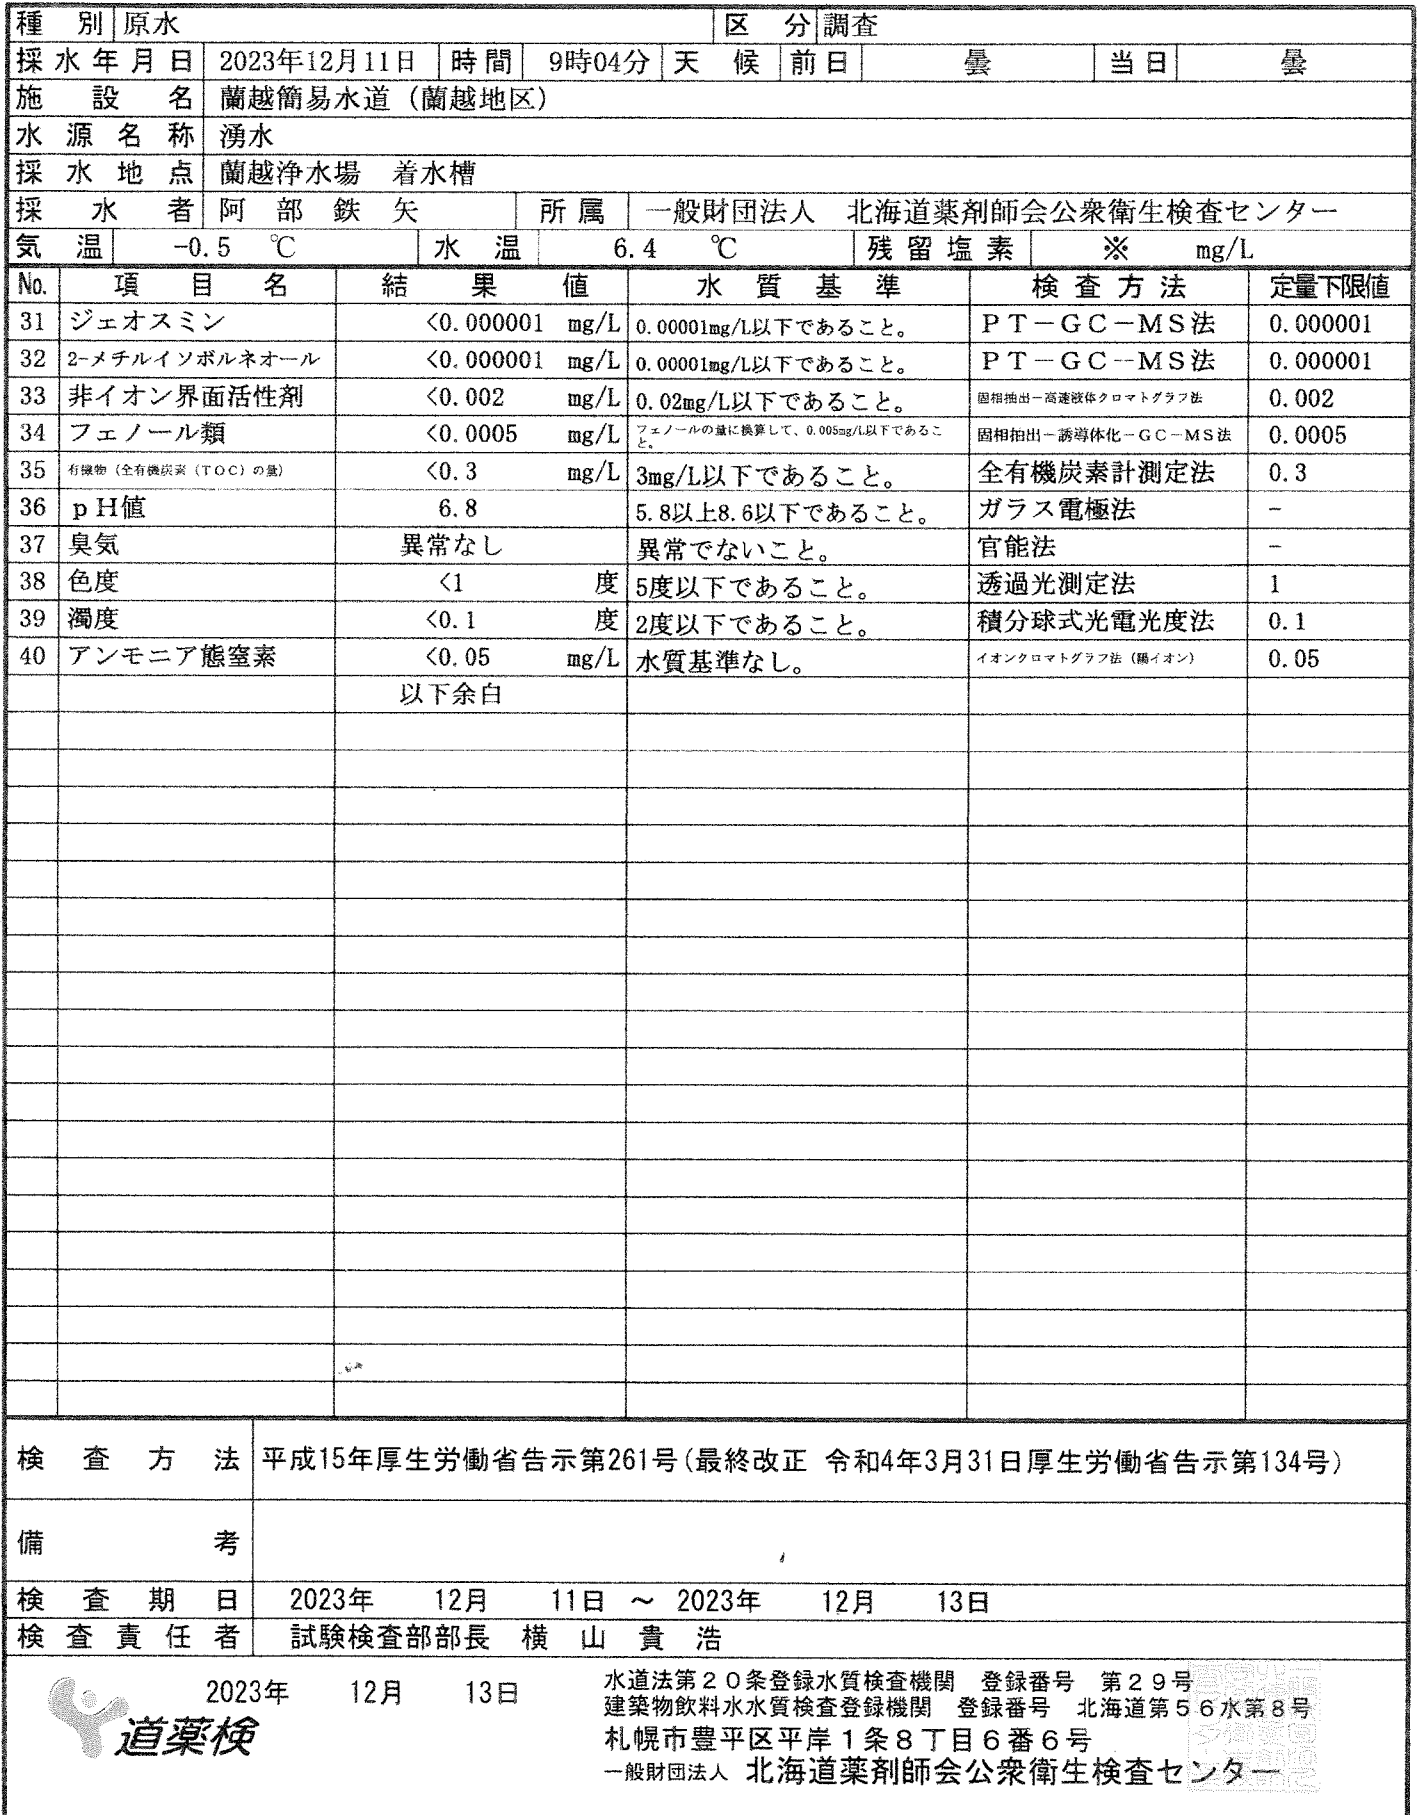 種別 原水 区分 調査
採水年月日 2023年12月11日 時間 9時04分 天候 前日 曇 当日 曇
施設名 蘭越簡易水道（蘭越地区）
水源名称 湧水
採水地点 蘭越浄水場 着水槽
採水者 阿部 鉄矢 所属 一般財団法人 北海道薬剤師会公衆衛生検査センター
気温 -0.5 ℃ 水温 6.4 ℃ 残留塩素 ※ mg/L
No. 項目名 結果値 水質基準 検査方法 定量下限値
31 ジェオスミン <0.000001 mg/L 0.00001mg/L以下であること。 PT－GC－MS法 0.000001
32 2-メチルイソボルネオール <0.000001 mg/L 0.00001mg/L以下であること。 PT－GC－MS法 0.000001
33 非イオン界面活性剤 <0.002 mg/L 0.02mg/L以下であること。 固相抽出－高速液体クロマトグラフ法 0.002
34 フェノール類 <0.0005 mg/L フェノールの量に換算して、0.005mg/L以下であること。 固相抽出－誘導体化－GC－MS法 0.0005
35 有機物（全有機炭素（TOC）の量） <0.3 mg/L 3mg/L以下であること。 全有機炭素計測定法 0.3
36 pH値 6.8 5.8以上8.6以下であること。 ガラス電極法 -
37 臭気 異常なし 異常でないこと。 官能法 -
38 色度 <1 度 5度以下であること。 透過光測定法 1
39 濁度 <0.1 度 2度以下であること。 積分球式光電光度法 0.1
40 アンモニア態窒素 <0.05 mg/L 水質基準なし。 イオンクロマトグラフ法（陽イオン） 0.05
以下余白
検査方法 平成15年厚生労働省告示第261号(最終改正 令和4年3月31日厚生労働省告示第134号)
備考
検査期日 2023年 12月 11日 ～ 2023年 12月 13日
検査責任者 試験検査部部長 横山 貴浩
2023年 12月 13日
道薬検
水道法第２０条登録水質検査機関 登録番号 第２９号
建築物飲料水水質検査登録機関 登録番号 北海道第５６水第８号
札幌市豊平区平岸１条８丁目６番６号
一般財団法人 北海道薬剤師会公衆衛生検査センター